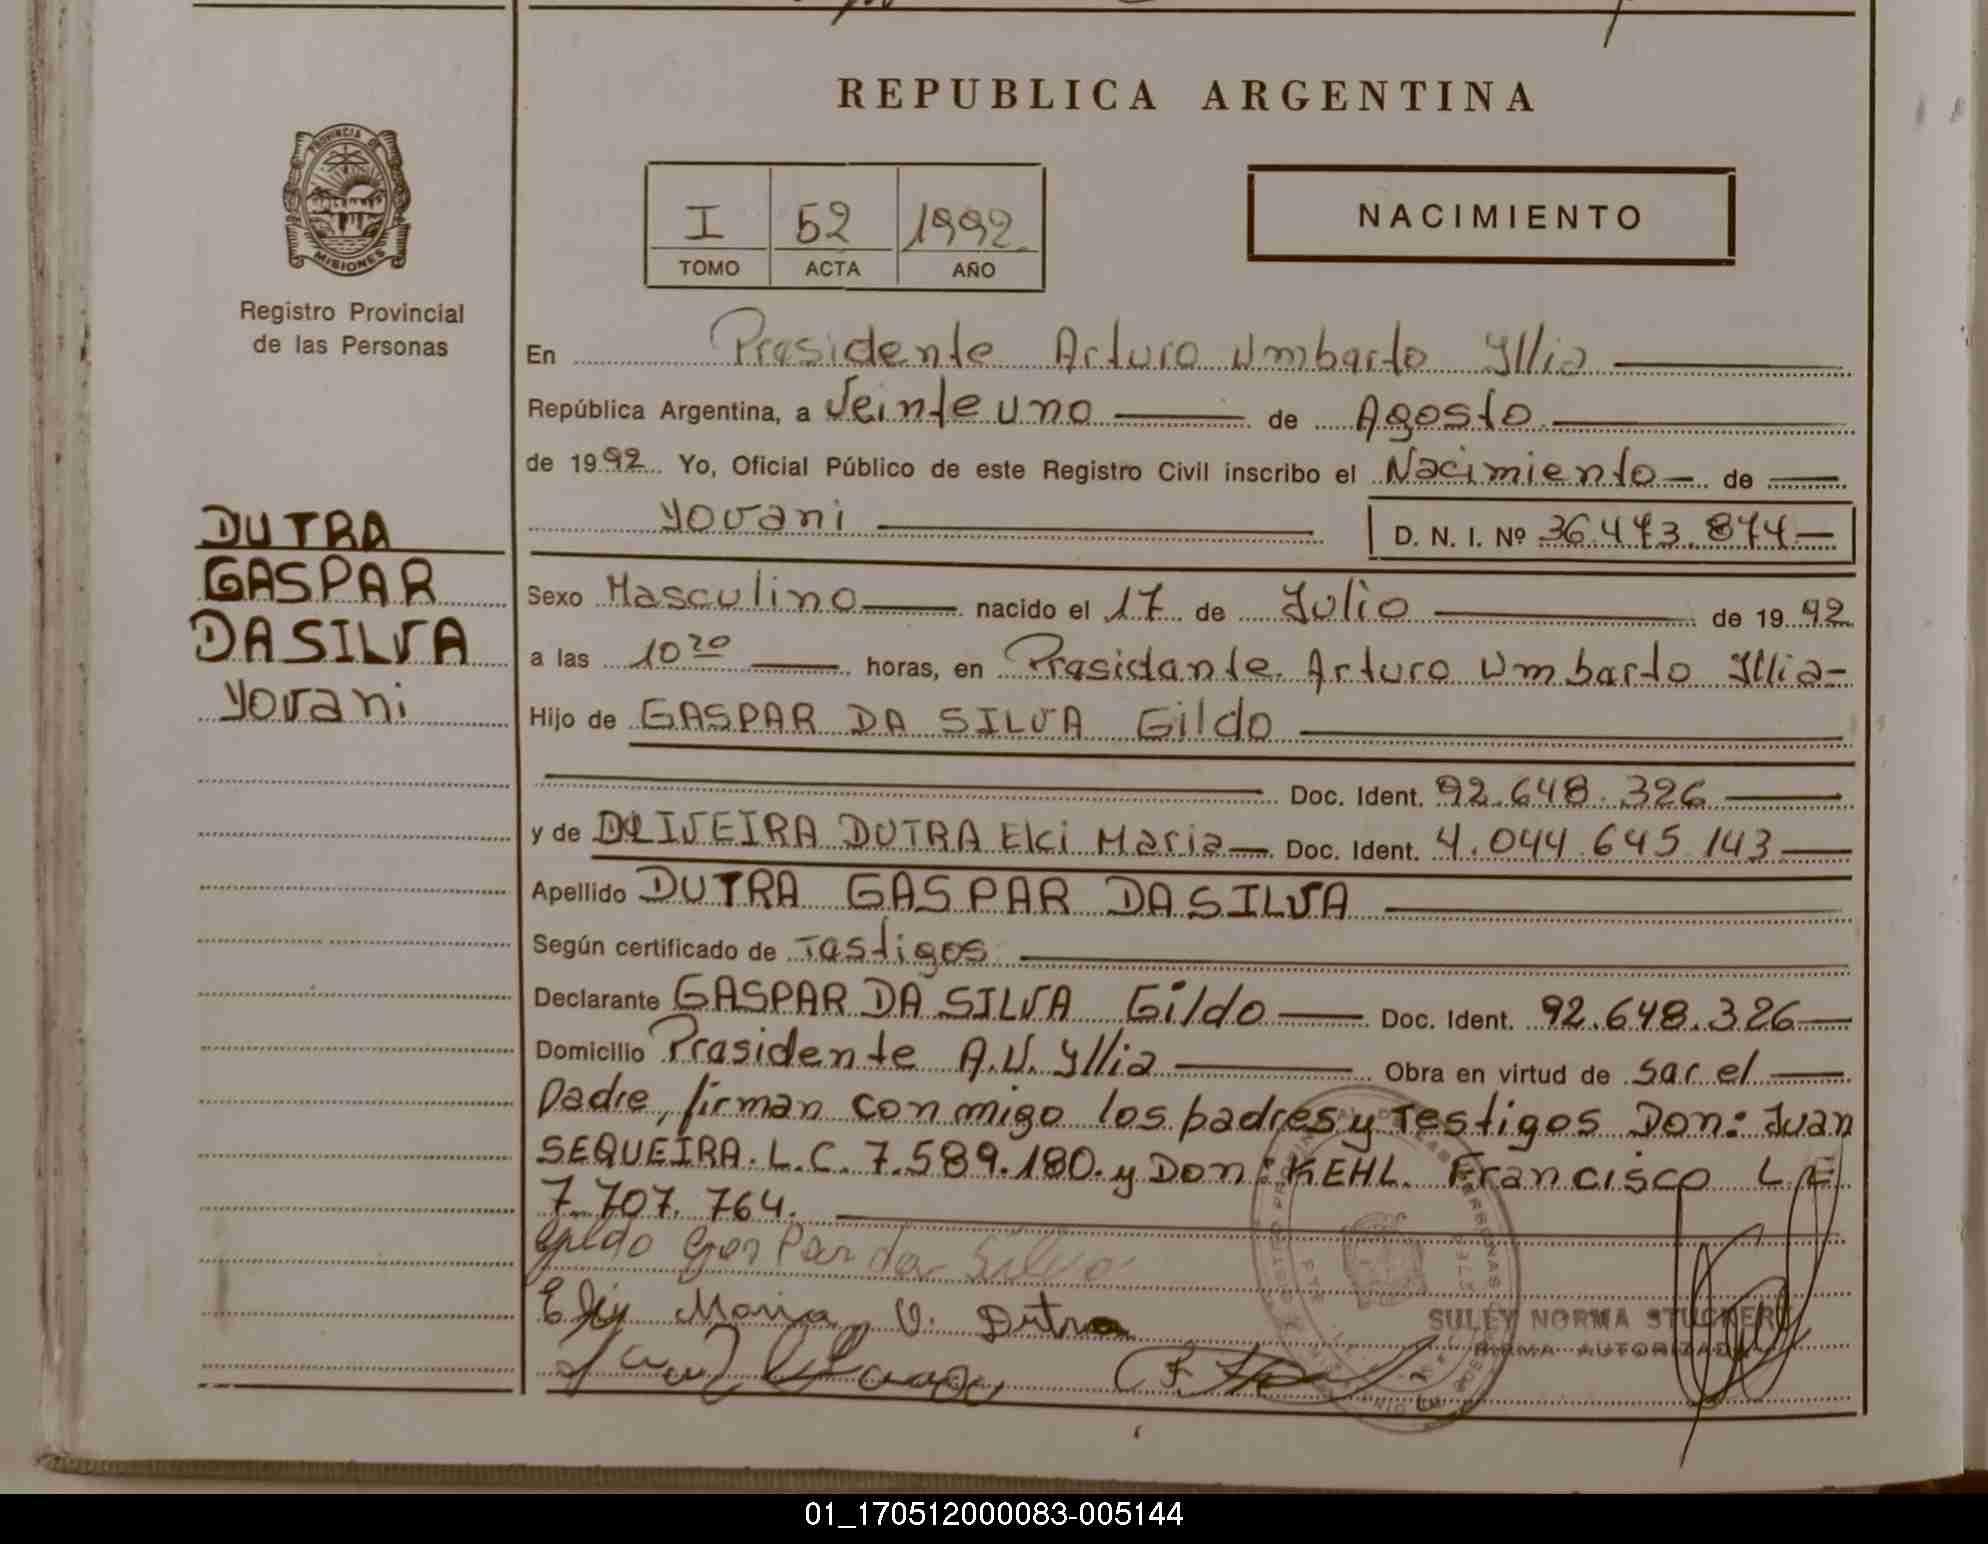 REPUBLICA ARGENTINA
PROVINCIA DE
MISIONES
Registro Provincial
de las Personas
I 52 1992
TOMO ACTA AÑO
NACIMIENTO
En Presidente Arturo Umbarto Yllia
República Argentina, a Veinte uno de Agosto
de 1992 Yo, Oficial Público de este Registro Civil inscribo el Nacimiento de
Yovani D. N. I. Nº 36.473.874
DUTRA
GASPAR
DA SILVA
Yovani
Sexo Masculino nacido el 17 de Julio de 1992
a las 10 20 horas, en Prasidante Arturo Umbarto Yllia
Hijo de GASPAR DA SILVA Gildo
Doc. Ident. 92.648.326
y de OLIVEIRA DUTRA Elci Maria Doc. Ident. 4.044.645.143
Apellido DUTRA GASPAR DA SILVA
Según certificado de Tastigos
Declarante GASPAR DA SILVA Gildo Doc. Ident. 92.648.326
Domicilio Prasidente A.U. Yllia Obra en virtud de sar el
Padre, firman con migo los padres y Testigos Don: Juan
SEQUEIRA. L.C. 7.589.180. y Don: KEHL. Francisco L.E
7.707.764.
Gildo Gaspar da Silva
Maria O. Dutra
SULLY NORMA
FIRMA AUTORIZADA
01_170512000083-005144